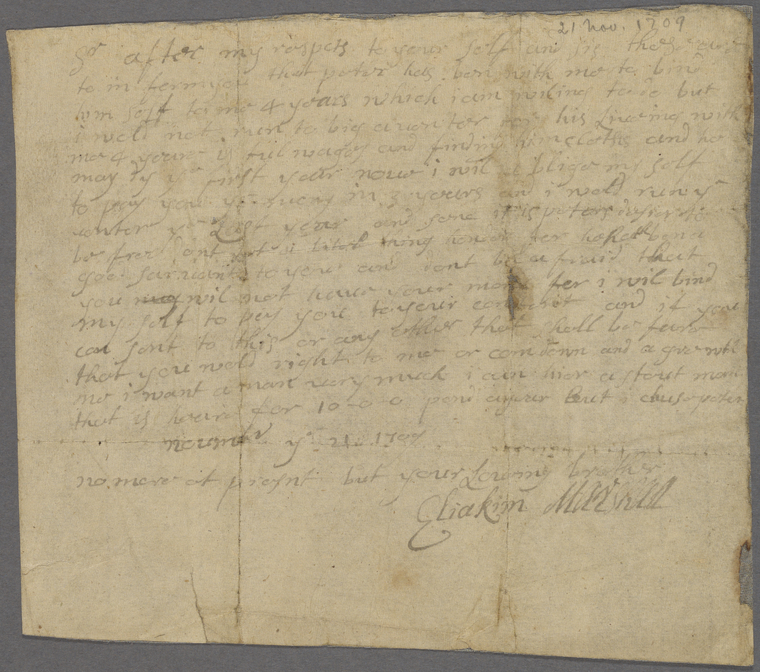 21 Nov. 1709
Sr after my respets to your self and is these are
to informe you that peter has ben with me to bind
him self to me 4 years which i am wiling to do but
i wold not run to big a venter for his Liveing with
me 4 years is ful wages and finding him cloths and he
may ly ye first year none i wil oblige my self
to pay you ye mony in 3 years and i wold run ye
venter ye Last year and
be free
good sarvant to you and dont be afraid that
you wil not have your mony for i wil bind
my self to pay you to your content and if you
can sent to this or any other that shall be faire
that you wold right to me or com down and agree with
me i want a man very much i can hier a stout man
that is heare for 10 0 0 per a year but i chuse peter
november ye 21 1709
no more at present but your Loveing brother
Eliakim